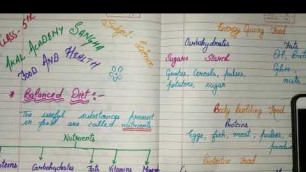 CLASS-5th
Subject - Science
AKAL ACADEMY SANGHA
FOOD AND HEALTH
* Balanced Diet:-
The useful substances present
in food are called nutrients.
Nutrients
Carbohydrates Fats Vitamins
Energy Giving Food
Carbohydrates Fats
Sugars Starch Oil,
Grains, Cereals, pulses,
potatoes, sugar
Body building Food
Proteins
Eggs, fish, meat, pulses,
Protective Food